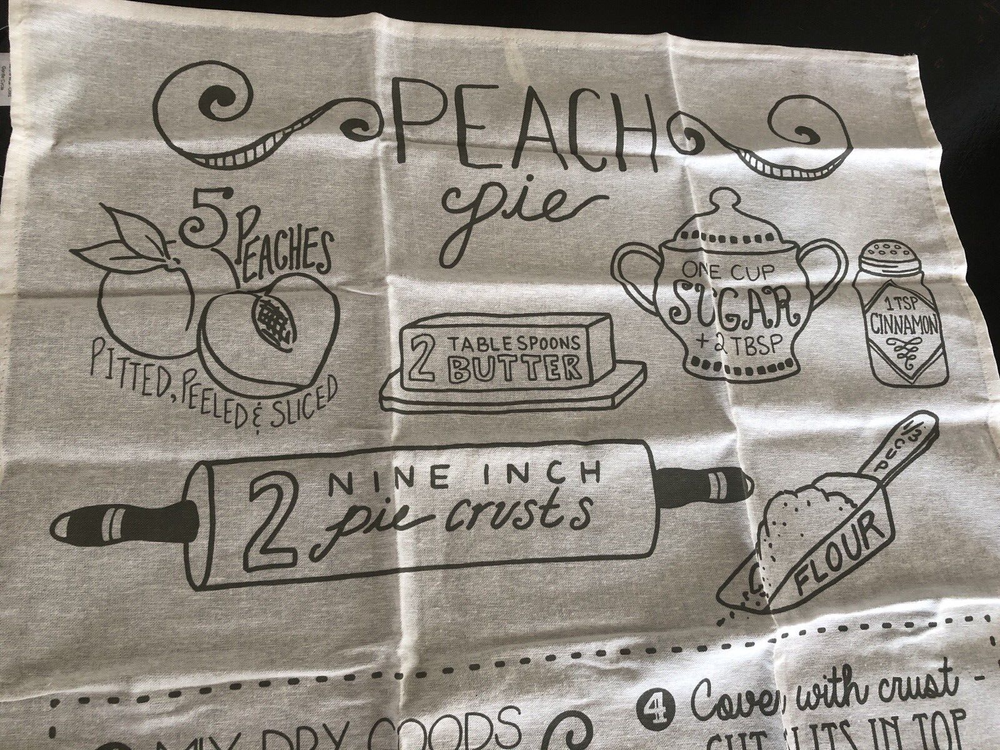 PEACH
pie
5 PEACHES
PITTED, PEELED & SLICED
2 TABLESPOONS
BUTTER
ONE CUP
SUGAR
+ 2 TBSP
1 TSP
CINNAMON
2 NINE INCH
pie crusts
1/3 CUP
FLOUR
MIX DRY GOODS
4 Cover with crust -
CUT SLITS IN TOP